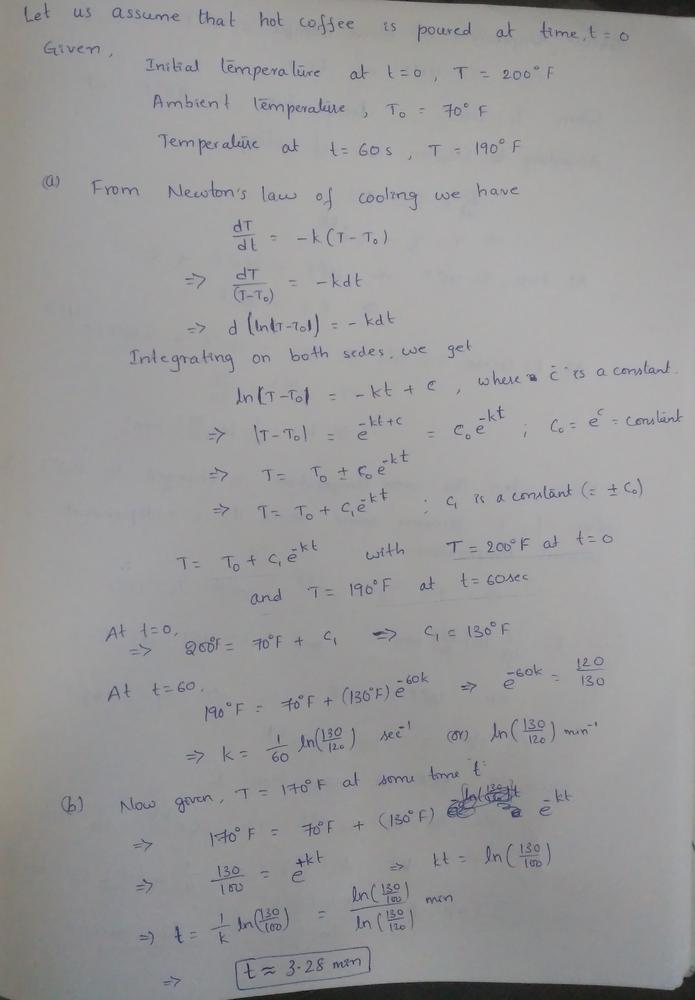 Let us assume that hot coffee is poured at time, t = 0
Given,
Initial temperature at t=0, T = 200°F
Ambient temperature, T₀ = 70°F
Temperature at t = 60s, T = 190°F
(a) From Newton's law of cooling we have
dT/dt = -k(T-T₀)
=> dT/(T-T₀) = -kdt
=> d(ln|T-T₀|) = -kdt
Integrating on both sedes, we get
ln|T-T₀| = -kt + c, where c is a constant.
=> |T-T₀| = e^(-kt+c) = C₀e^(-kt) ; C₀ = e^c = constant
=> T = T₀ ± C₀e^(-kt)
=> T = T₀ + C₁e^(-kt) ; C₁ is a constant (= ± C₀)
T = T₀ + C₁e^(-kt) with T = 200°F at t=0
and T = 190°F at t=60sec
At t=0,
=> 200°F = 70°F + C₁ => C₁ = 130°F
At t=60.
190°F = 70°F + (130°F)e^(-60k) => e^(-60k) = 120/130
=> k = 1/60 ln(130/120) sec⁻¹ (or) ln(130/120) min⁻¹
(b) Now given, T = 170°F at some time 't'
=> 170°F = 70°F + (130°F) e^(-kt)
=> 130/100 = e^(+kt) => kt = ln(130/100)
=> t = 1/k ln(130/100) = ln(130/100)/ln(130/120) min
=> t ≈ 3.28 min